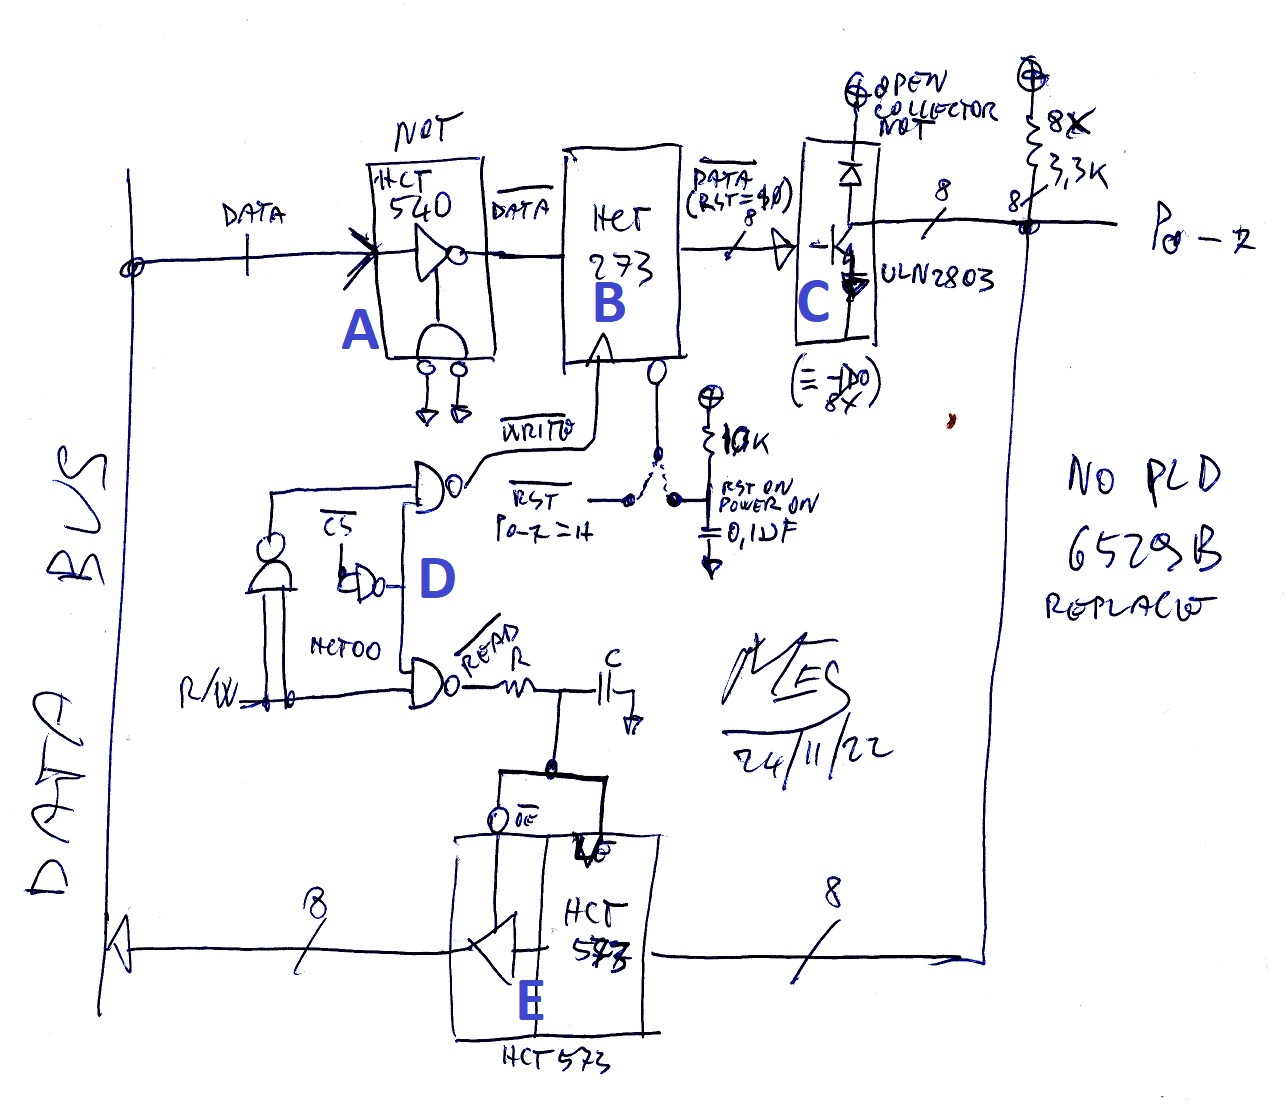 NOT
HCT
540
A
DATA
DATA
HCT
273
B
DATA
(RST=$0)
8
OPEN
COLLECTOR
NOT
C
ULN2803
8X
8
8X
3,3K
8
P0-7
WRITE
RST
P0-7=H
10K
RST ON
POWER ON
0,1UF
CS
D
HCT00
R/W
READ
R
C
DATA BUS
NO PLD
6529B
REPLACE
MES
24/11/22
OE
HCT
573
E
8
8
HCT573